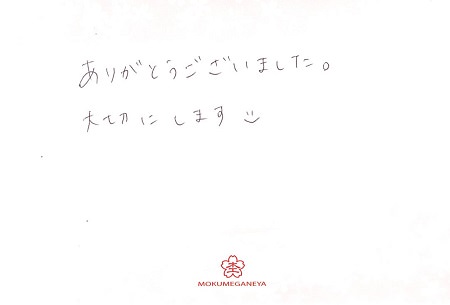 ありがとうございました。
大切にします
MOKUMEGANEYA